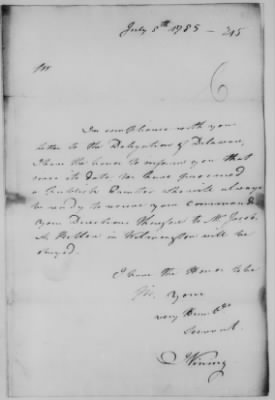 July 5th 1785 — 245
Sir
6
In compliance with your
letter to the Delegation of Delaware,
I have the honor to inform you that
since its date we have procured
a Publick Printer who will always
be ready to receive your commands
Your Directions therefore to Mr Jacob
A in Wilmington will be
obeyed.
I have the Honor to be
Sir Your
very Hum.
Servant
Vining